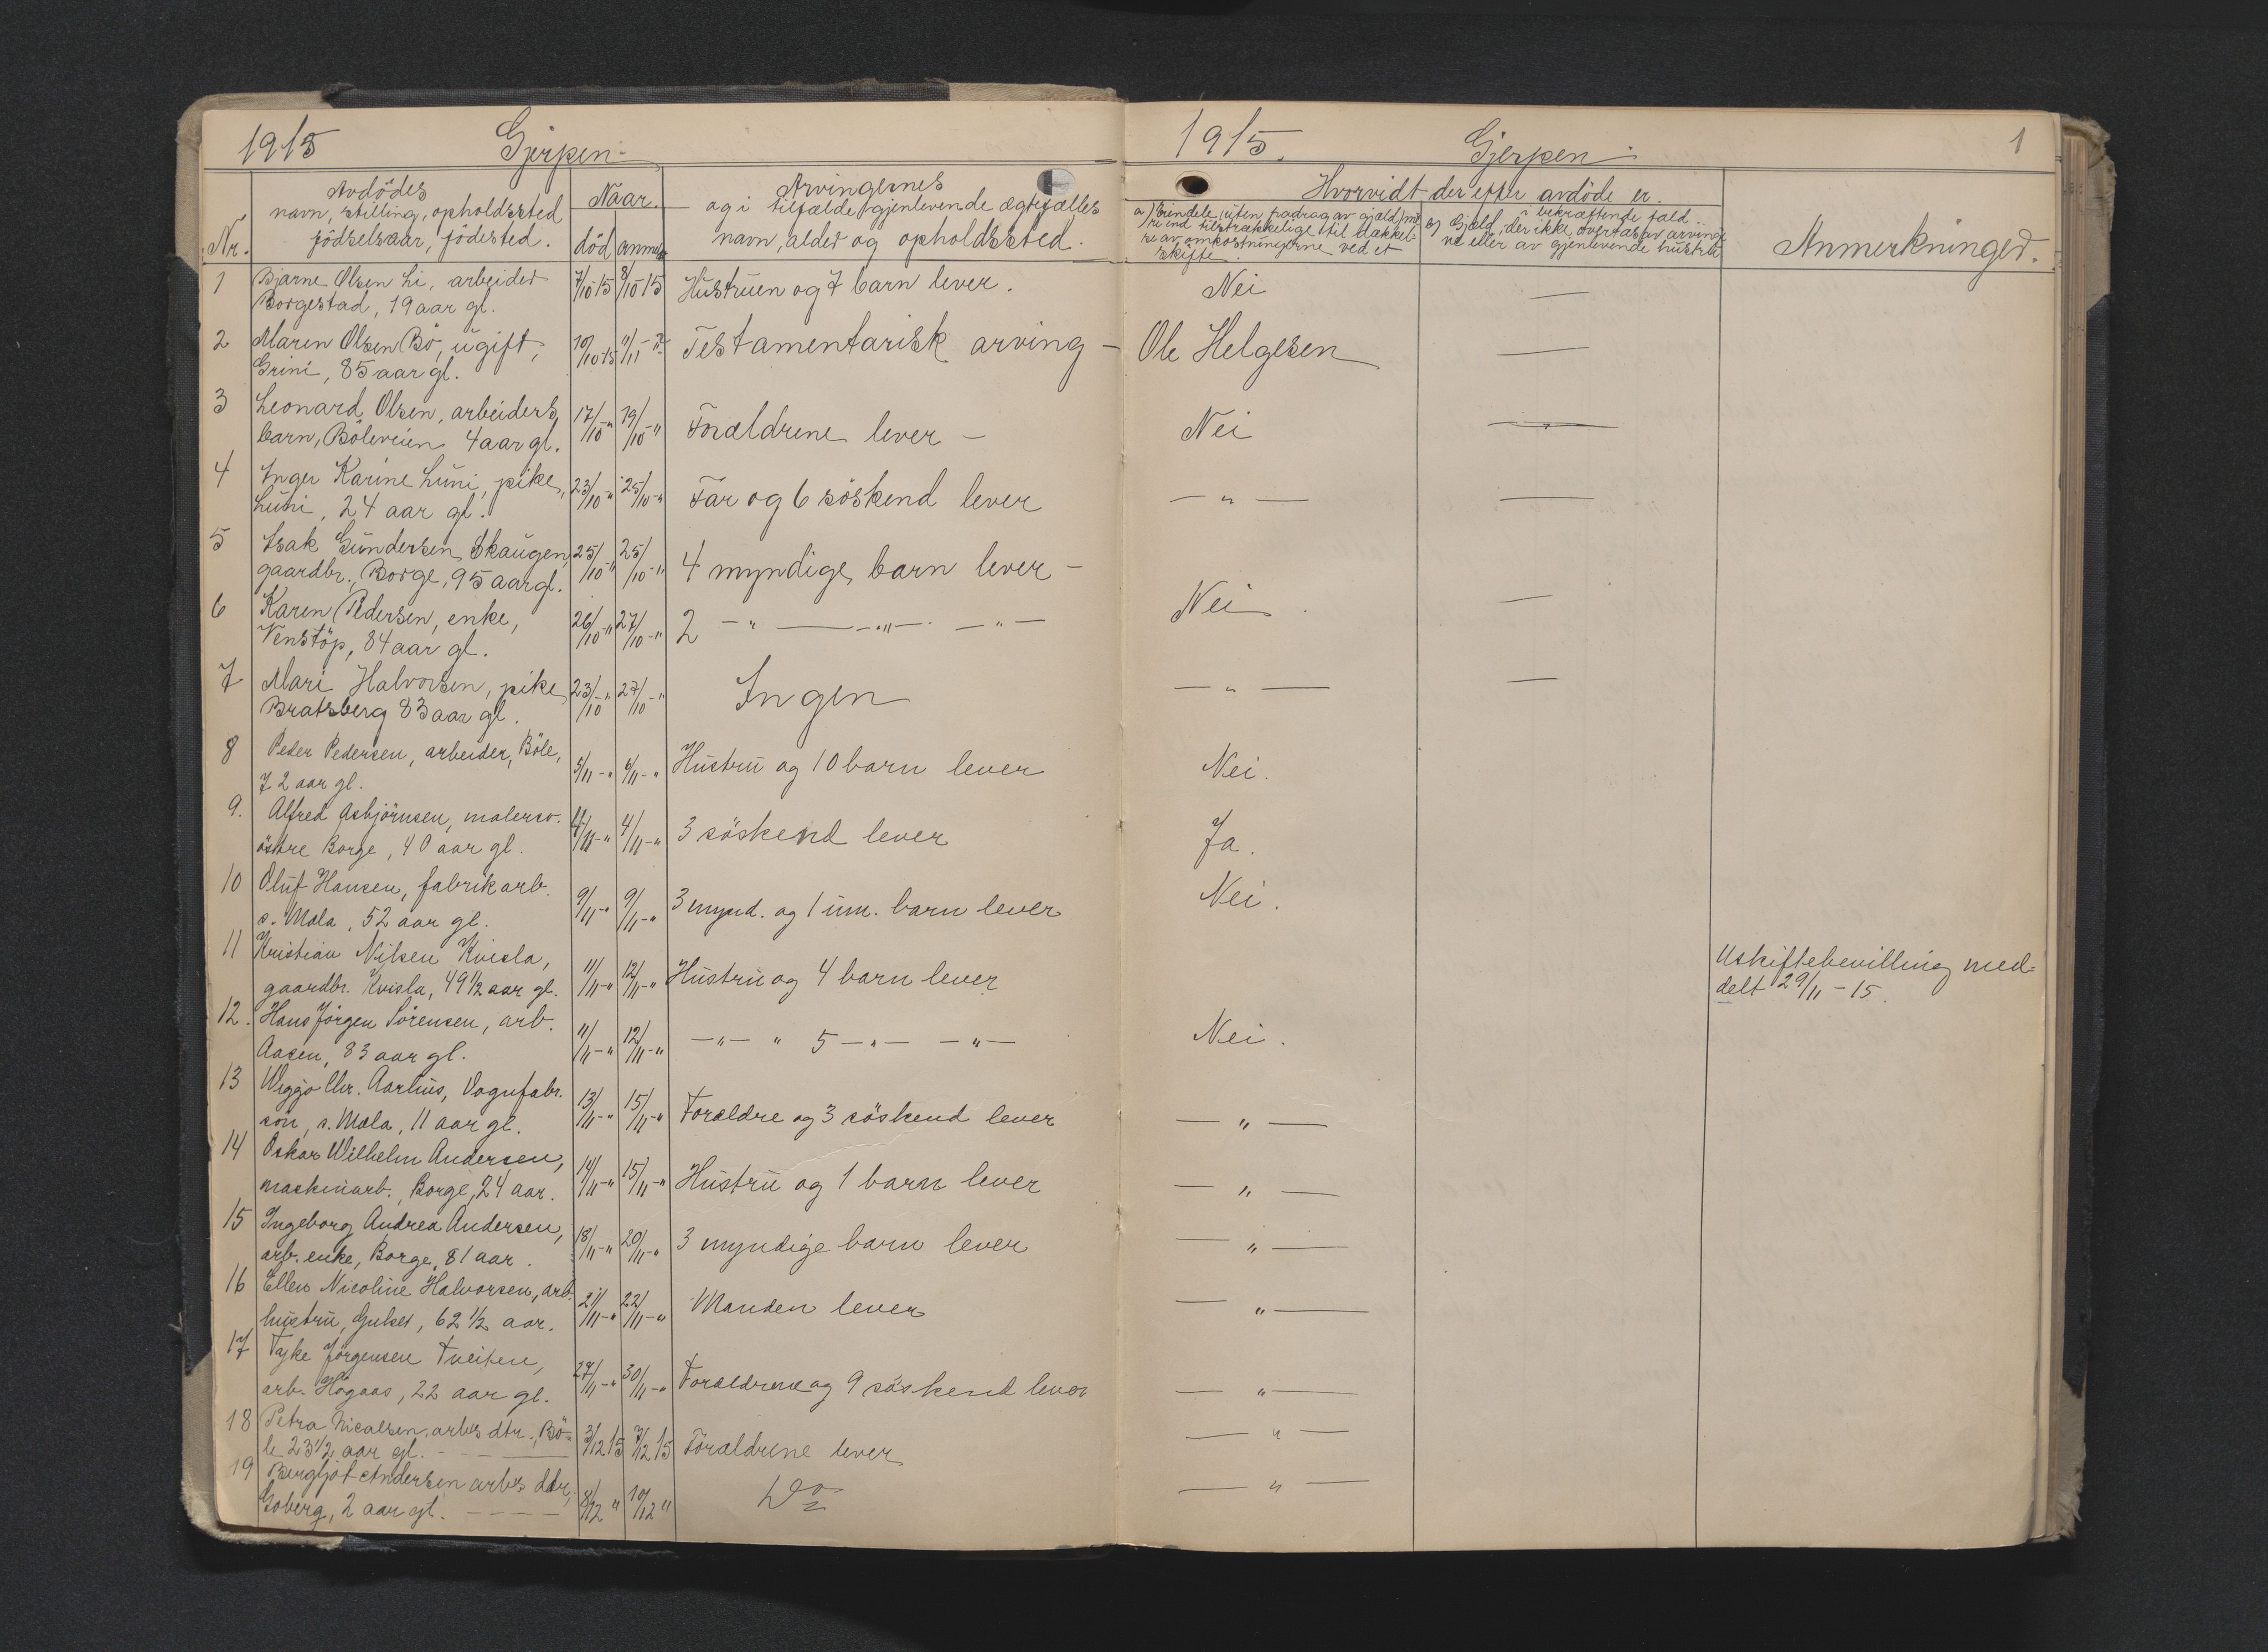 1915 Gjerpen
Nr.
Avdödes
navn, stilling, opholdssted
födselsaar, födested.
Naar.
död anm.
Arvingernes
og i tilfælde gjenlevende ægtefælles
navn, alder og opholdssted.
1 Bjarne Olsen Li, arbeider 7/10 15 8/10 15 Hustruen og 7 barn lever.
Borgestad, 19 aar gl.
2 Maren Olsen Bö, ugift, 10/10 15 11/11 Testamentarisk arving –
Grini, 85 aar gl.
3 Leonard Olsen, arbeiders 17/10 " 19/10 " Forældrene lever –
barn, Böleveien 4 aar gl.
4 Inger Karine Luni, pike, 23/10 " 25/10 " Far og 6 söskend lever
Luni, 24 aar gl.
5 Isak Gundersen Skaugen, 25/10 " 25/10 " 4 myndige barn lever –
gaardbr., Borge, 95 aar gl.
6 Karen Pedersen, enke, 26/10 " 27/10 " 2 – " – – " – – " –
Venstöp, 84 aar gl.
7 Mari Halvorsen, pike, 23/10 " 27/10 " Ingen
Bratsberg 83 aar gl.
8 Peder Pedersen, arbeider, Böle, 5/11 – " 6/11 – " Hustru og 10 barn lever
72 aar gl.
9. Alfred Asbjörnsen, malersv. 4/11 – " 4/11 – " 3 söskend lever
östre Borge, 40 aar gl.
10 Oluf Hansen, fabrikarb. 9/11 – " 9/11 – " 3 mynd. og 1 um. barn lever
s. Mæla, 52 aar gl.
11 Kristian Nilsen Kvisla, 11/11 – " 12/11 – " Hustru og 4 barn lever
gaardbr. Kvisla, 49 1/2 aar gl.
12. Hans Jörgen Sörensen, arb. 11/11 – " 12/11 – " – " – " 5 – " – – " –
Aasen, 83 aar gl.
13 Viggo Chr. Aarhus, Vognfabr. 13/11 – " 15/11 – " Forældre og 3 söskend lever
sön, s. Mæla, 11 aar gl.
14 Oskar Wilhelm Andersen, 14/11 – " 15/11 – " Hustru og 1 barn lever
maskinarb., Borge, 24 aar.
15 Ingeborg Andrea Andersen, 18/11 – " 20/11 – " 3 myndige barn lever
arb. enke, Borge, 81 aar.
16 Ellen Nicoline Halvorsen, arb. 21/11 – " 22/11 – " Manden lever
hustru, Gulset, 62 1/2 aar.
17 Tyke Jörgensen Tveiten, 27/11 – " 30/11 – " Forældrene og 9 söskend lever
arb. Högaas, 22 aar gl.
18 Petra Nicalsen, arbs dtr., Bö- 3/12 15 7/12 15 Forældrene lever
le 23 1/2 aar gl. – –
19 Bergljot Andersen arbs dtr, 8/12 " 10/12 " Do
Goberg, 2 aar gl. – – – –
1915. Gjerpen 1
Hvorvidt der efter avdöde er.
a) Eiendele (uten fradrag av gjæld) mere end tilstrækkelige til dækkelse av omkostningerne ved et skifte.
b) Gjæld, i bekræftende fald der ikke overtas av arvinge
ne eller av gjenlevende hustru
Anmerkninger.
Nei —
Ole Helgesen —
Nei — " —
— " — —
Nei. —
— " — —
Nei.
Ja.
Nei.
Uskiftebevilling med-
delt 29/11 – 15.
Nei.
— " —
— " —
— " —
— " —
— " —
— " —
— " —